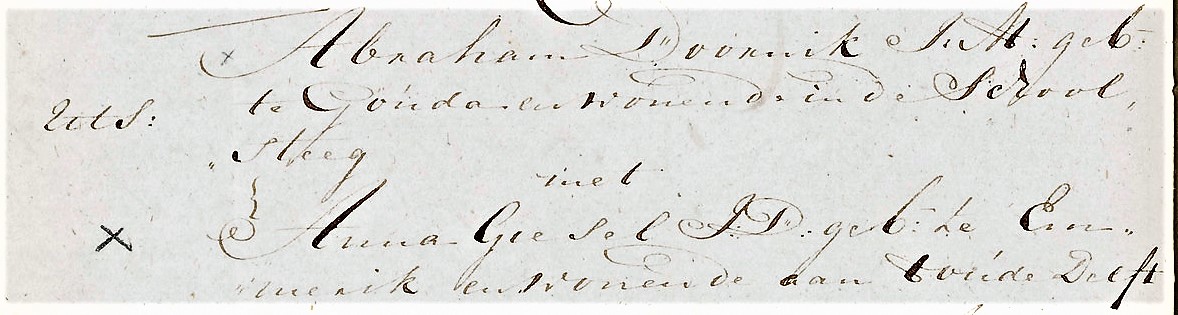 Abraham Doornik J: M: geb:
te Gouda en wonende in de School,
Uts:
„steeg
met
Anna Giesel J: D: geb: te Em„
„merik en wonende aan t oude Delft